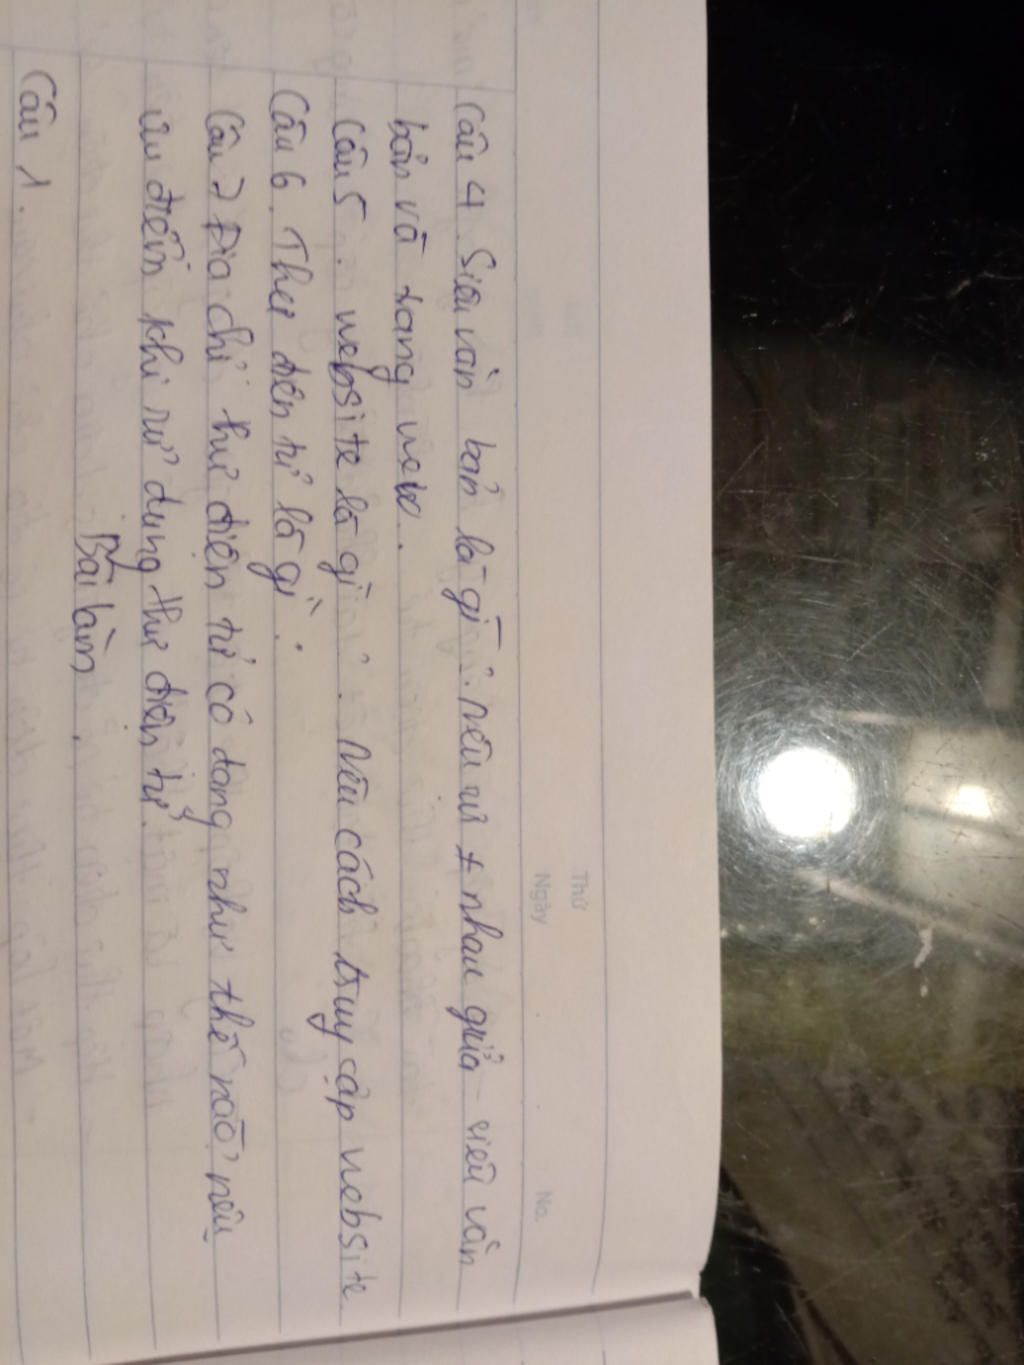 Thứ
Ngày
No.
Câu 4. Siêu văn bản là gì? nêu sự ≠ nhau giữa siêu văn
bản và trang web.
Câu 5. website là gì? . Nêu cách truy cập website.
Câu 6. Thư điện tử là gì?
Câu 7 Địa chỉ thư điện tử có dạng như thế nào? nêu
ưu điểm khi sử dụng thư điện tử.
Bài làm.
Câu 1.